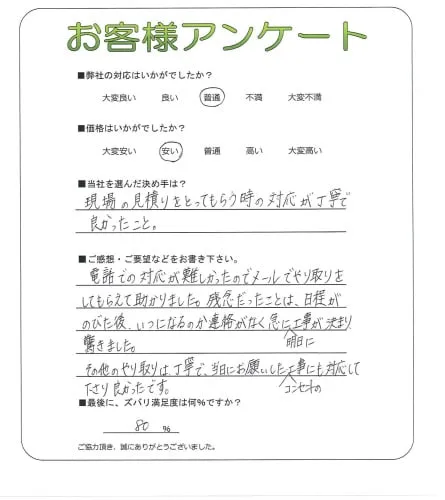 お客様アンケート
■弊社の対応はいかがでしたか？
大変良い 良い 普通 不満 大変不満
■価格はいかがでしたか？
大変安い 安い 普通 高い 大変高い
■当社を選んだ決め手は？
現場の見積りをとってもらう時の対応が丁寧で
良かったこと。
■ご感想・ご要望などをお書き下さい。
電話での対応が難しかったのでメールでやり取りを
してもらえて助かりました。残念だったことは、日程が
のびた後、いつになるのか連絡がなく急に工事が決まり
明日に
驚きました。
その他のやり取りは丁寧で、当日にお願いした工事にも対応して
コンセントの
下さり良かったです。
■最後に、ズバリ満足度は何%ですか？
80 %
ご協力頂き、誠にありがとうございました。